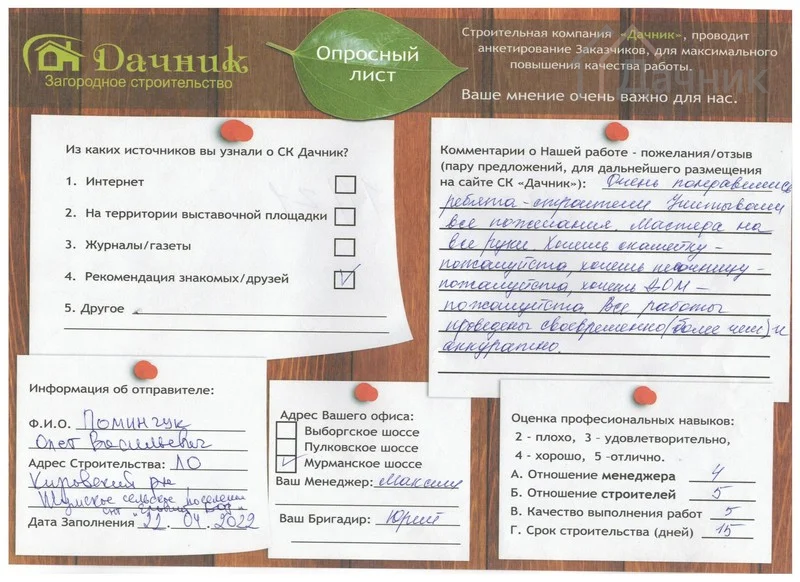 Дачник
Загородное строительство
Опросный
лист
Строительная компания «Дачник», проводит
анкетирование Заказчиков, для максимального
повышения качества работы.
Ваше мнение очень важно для нас.
Дачник
Из каких источников вы узнали о СК Дачник?
1. Интернет
2. На территории выставочной площадки
3. Журналы/газеты
4. Рекомендация знакомых/друзей
5. Другое
Комментарии о Нашей работе - пожелания/отзыв
(пару предложений, для дальнейшего размещения
на сайте СК «Дачник»): Очень понравились
ребята-строители Учитывали
все пожелания. Мастера на
все руки. Хочешь скаметку-
пожалуйста, хочешь песочницу-
пожалуйста, хочешь ДОМ-
пожалуйста. Все работы
проведены своевременно (более чем) и
аккуратно.
Информация об отправителе:
Ф.И.О. Поминчук
Олег Васильевич
Адрес Строительства: ЛО
Кировский р-н
Шумское сельское поселение
снт
Дата Заполнения 22. 04. 2022
Адрес Вашего офиса:
Выборгское шоссе
Пулковское шоссе
Мурманское шоссе
Ваш Менеджер: Максим
Ваш Бригадир: Юрий
Оценка профессиональных навыков:
2 - плохо, 3 - удовлетворительно,
4 - хорошо, 5 -отлично.
А. Отношение менеджера 4
Б. Отношение строителей 5
В. Качество выполнения работ 5
Г. Срок строительства (дней) 15
Дачник